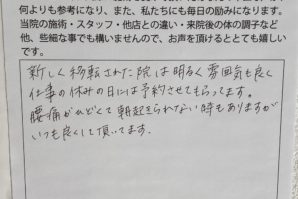 何よりも参考になり、また、私たちにも毎日の励みになります。
当院の施術・スタッフ・他店との違い・来院後の体の調子など
他、些細な事でも構いませんので、お声を頂けるととても嬉しい
です。
新しく移転された院は明るく雰囲気も良く
仕事の休みの日には予約させてもらってます。
腰痛がひどくて朝起きられない時もありますが
いつも良くして頂いてます。